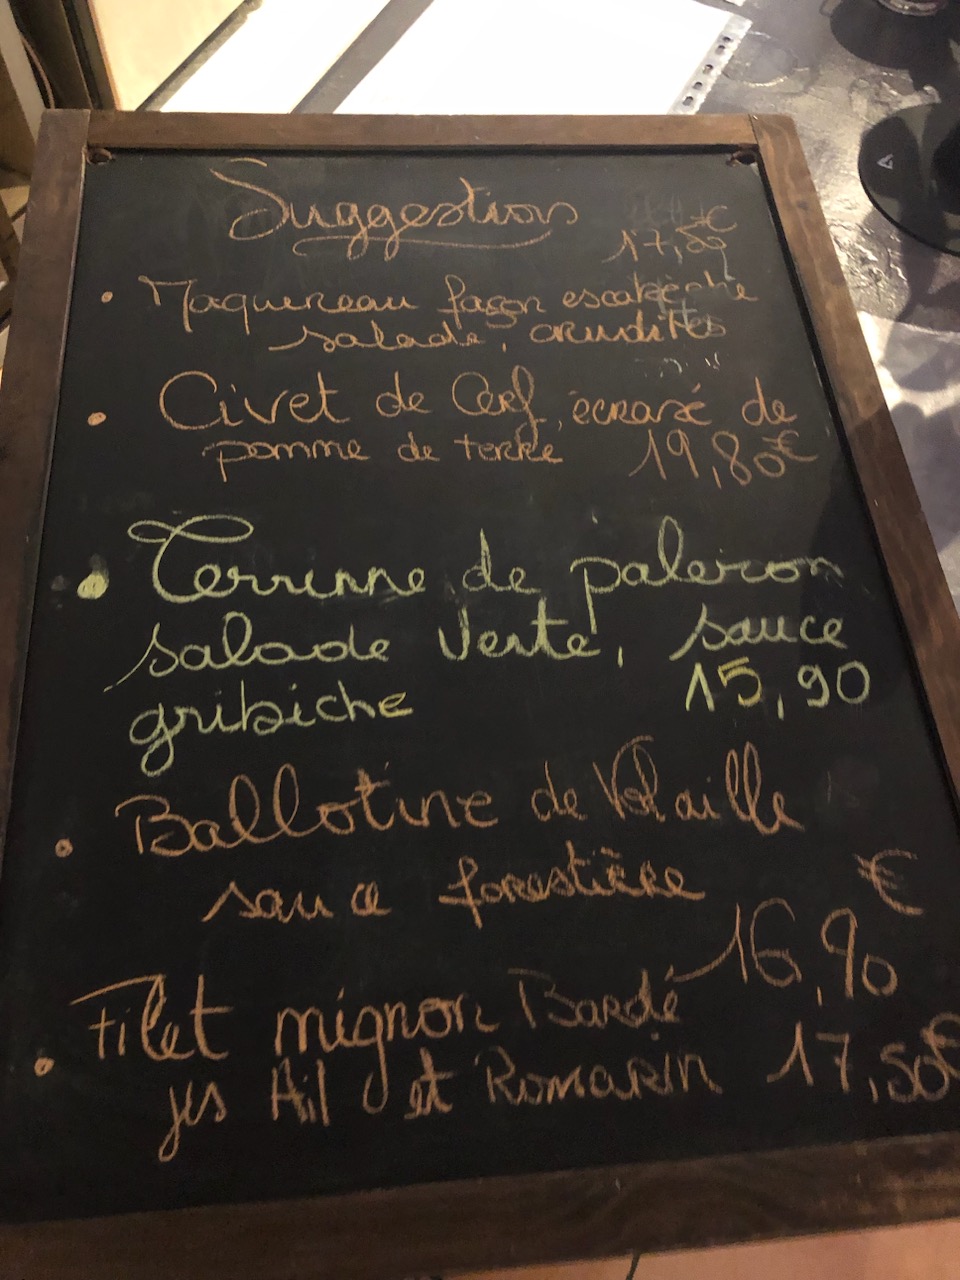 Suggestions
17,50€
• Maquereau façon escabèche
salade, crudités
• Civet de Cerf, écrasé de
pomme de terre 19,80€
• Terrinne de paleron
salade verte, sauce
gribiche 15,90
• Ballotine de Volaille
sauce forestière €
16,90
• Filet mignon Bardé
jus Ail et Romarin 17,50€